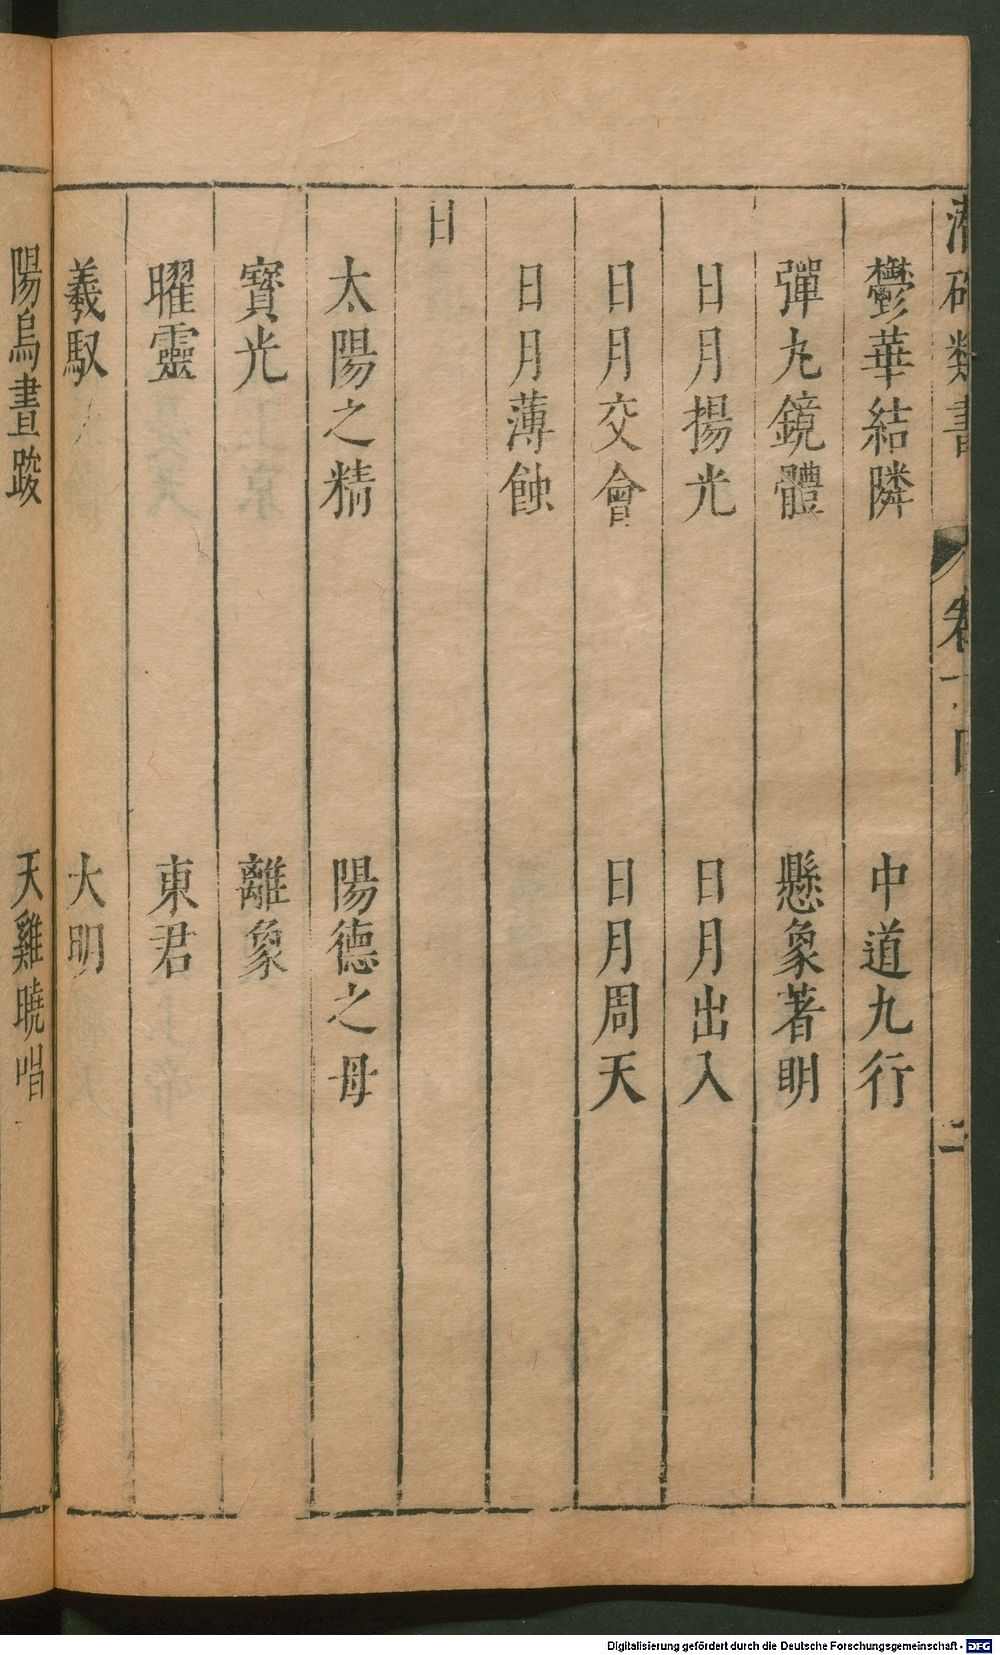 潛確類書 卷十四 二
鬱華結隣 中道九行
彈丸鏡體 懸象著明
日月揚光 日月出入
日月交會 日月周天
日月薄蝕
日
太陽之精 陽德之母
寶光 離象
曜靈 東君
羲馭 大明
陽烏晝踆 天雞曉唱
Digitalisierung gefördert durch die Deutsche Forschungsgemeinschaft - DFG